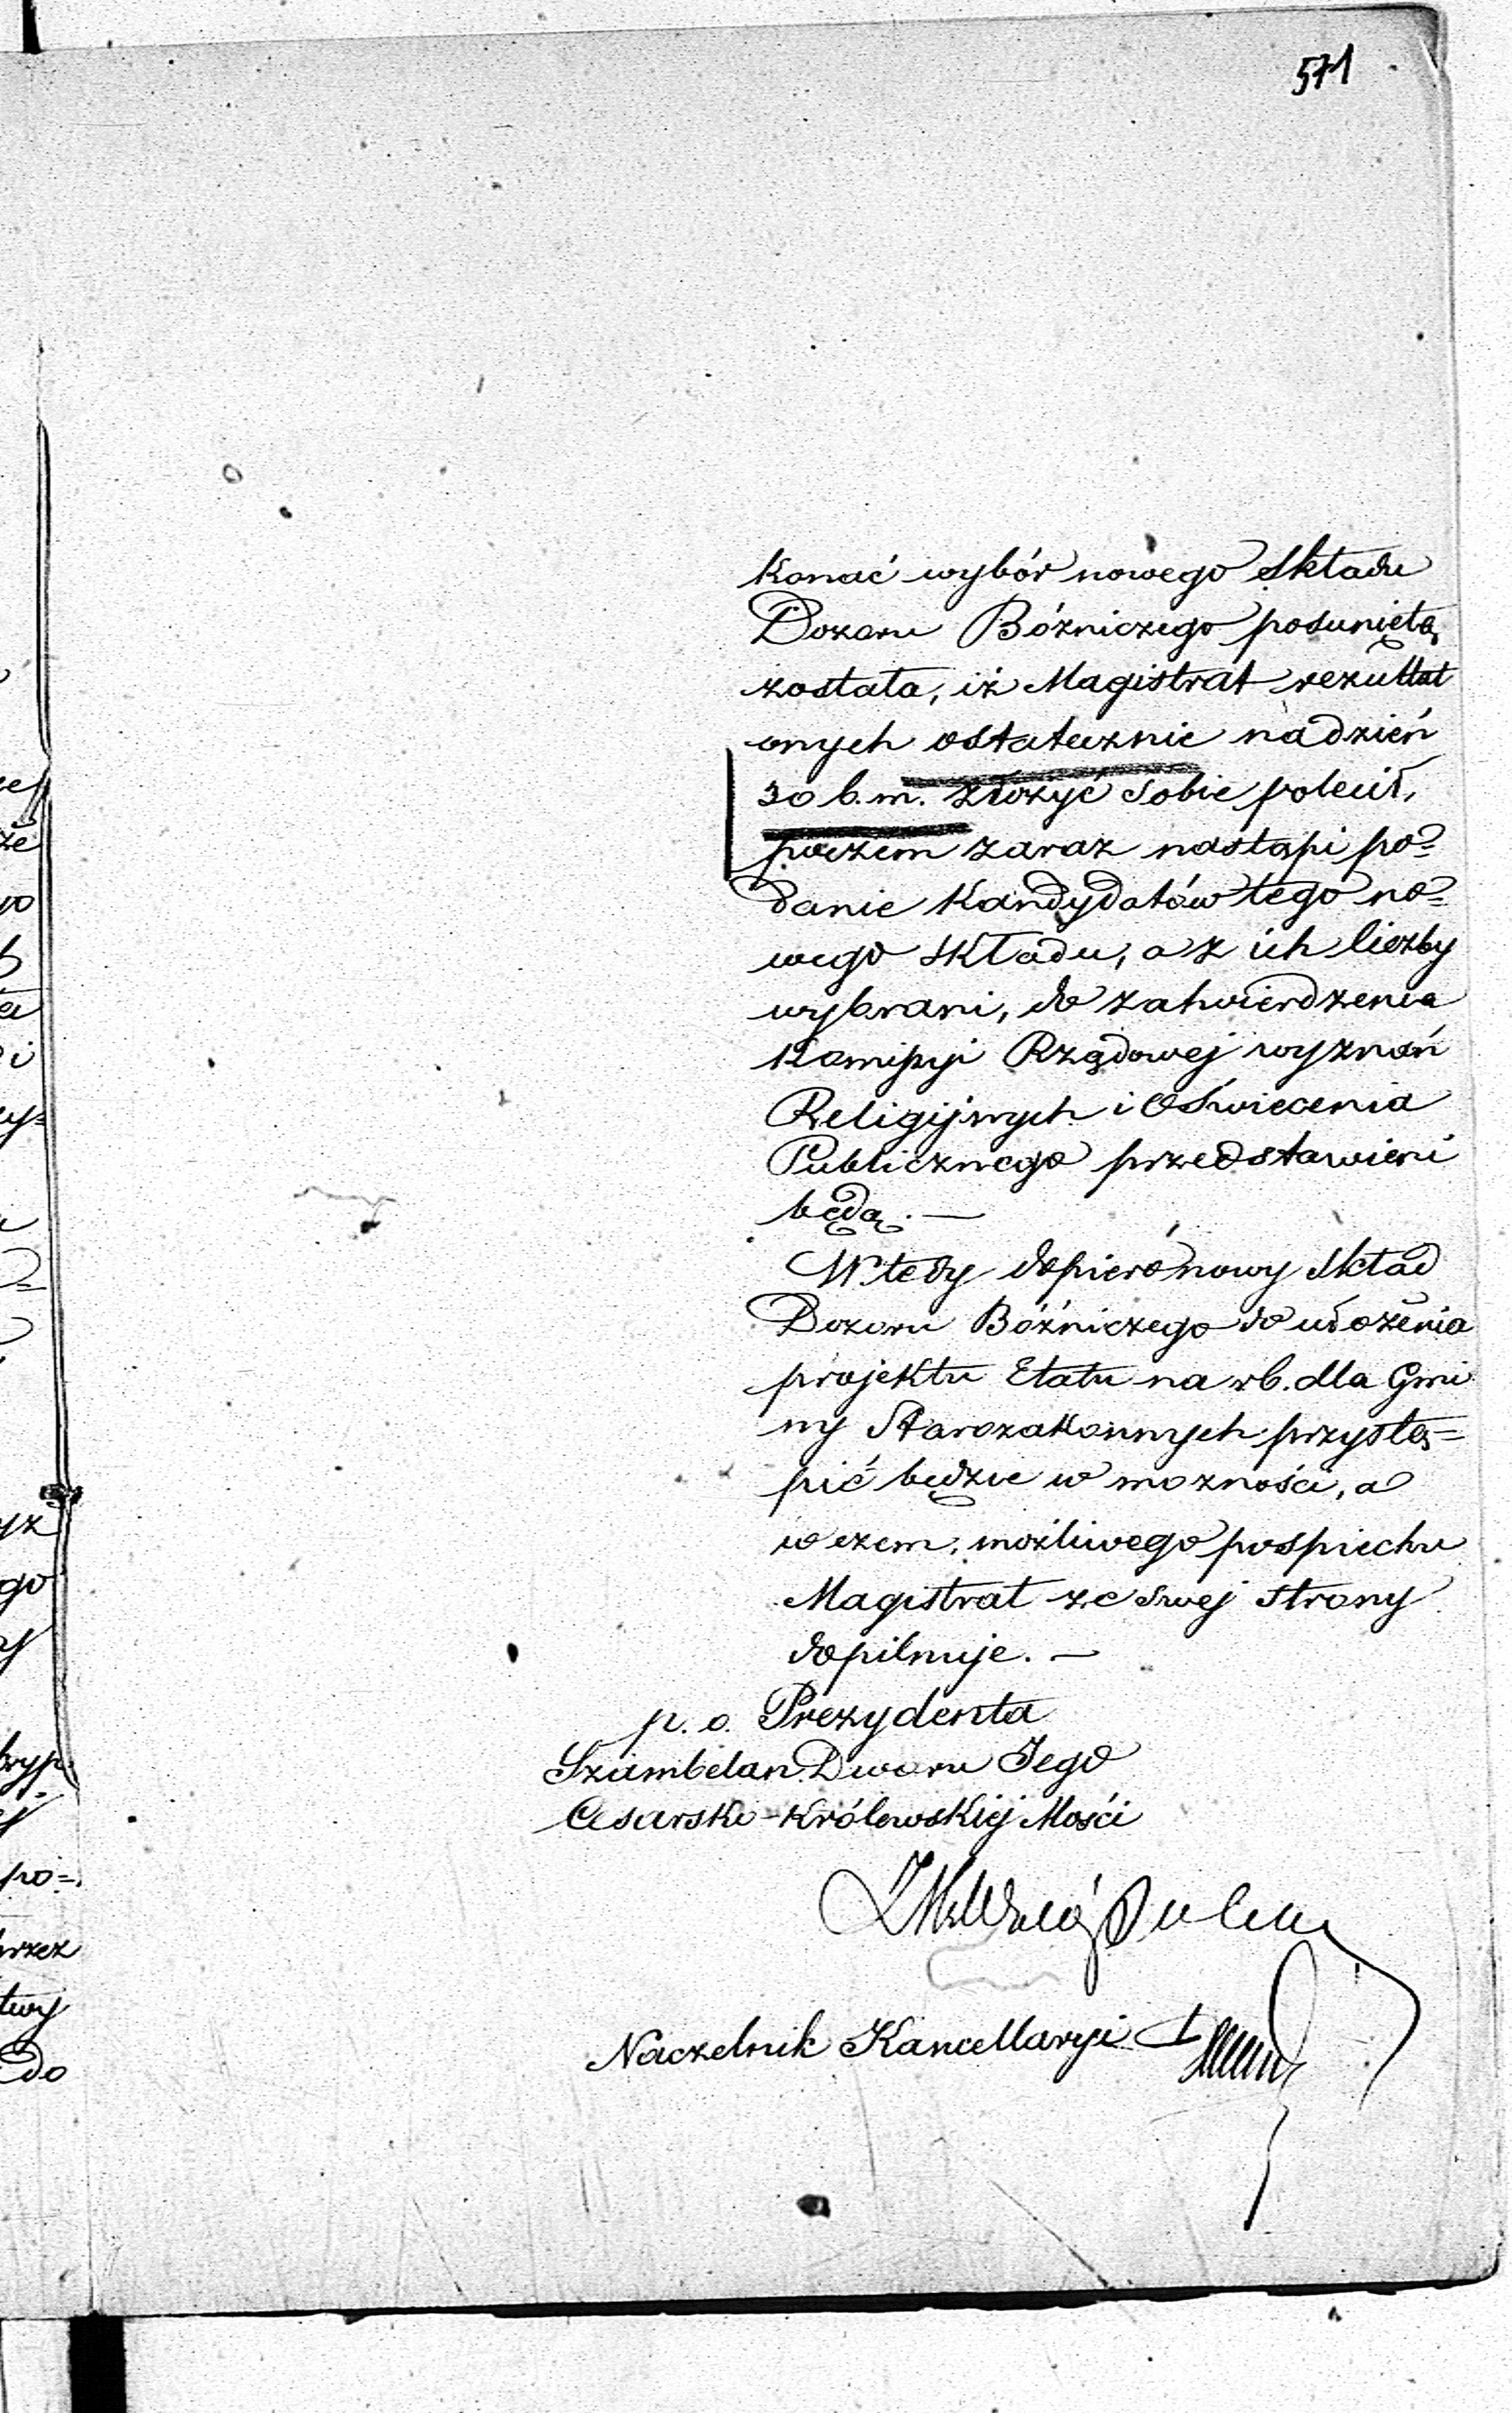 571
konać wybór nowego Składu
Dozoru Bóźniczego posuniętą
została, iż Magistrat rezultat
onych ostatecznie na dzień
30 b. m. złożyć sobie polecił,
poczem zaraz nastąpi po=
danie Kandydatów tego no=
wego składu, a z ich liczby
wybrani, do zatwierdzenia
Kommissyi Rządowej wyznań
Religijnych i Oświecenia
Publicznego przedstawieni
będą. —
Wtedy dopiero nowy skład
Dozoru Bóźniczego do ułożenia
projektu Etatu na rb. dla Gmi
ny Starozakonnych przystą=
pić będzie w możności, a
w czem, możliwego pospiechu
Magistrat ze swej strony
dopilnuje. —
p. o. Prezydenta
Szambelan Dworu Jego
Cesarsko-Królewskiej Mości
Naczelnik Kancellaryi